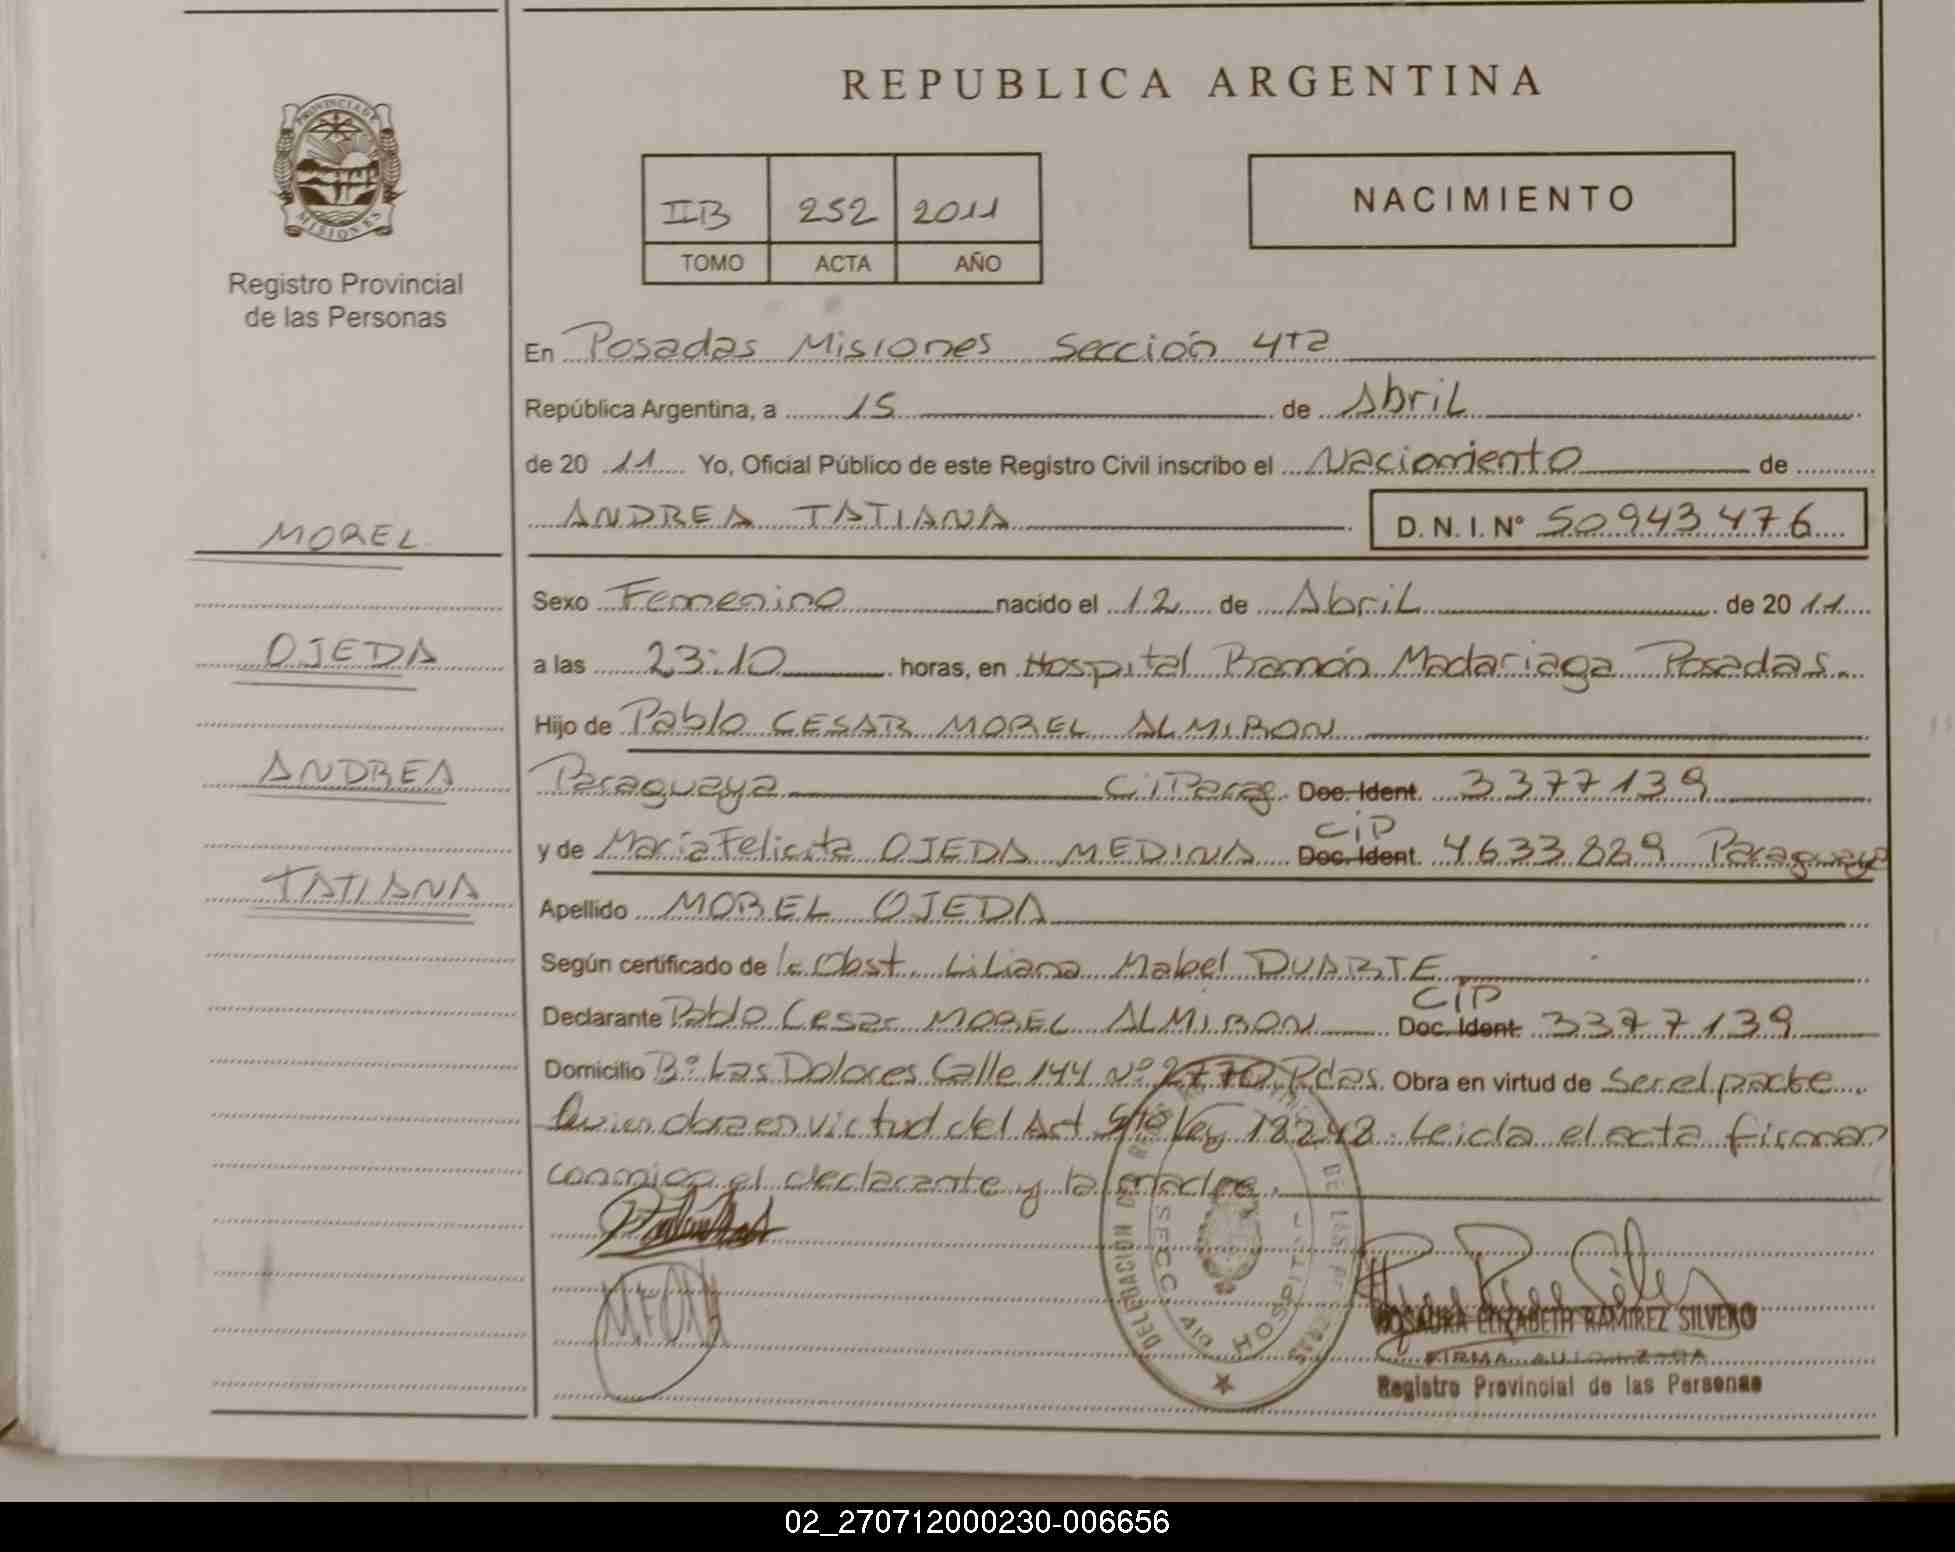 REPUBLICA ARGENTINA
PROVINCIA DE
MISIONES
Registro Provincial
de las Personas
NACIMIENTO
IIB 252 2011
TOMO ACTA AÑO
En Posadas Misiones Sección 4ta
República Argentina, a 15 de Abril
de 20 11 Yo, Oficial Público de este Registro Civil inscribo el Naciomiento de
ANDREA TATIANA D. N. I. N° 50943476
MOREL
OJEDA
ANDREA
TATIANA
Sexo Femenino nacido el 12 de Abril de 20 11
a las 23:10 horas, en Hospital Ramón Madariaga Posadas.
Hijo de Pablo CESAR MOREL ALMIRON
Paraguaya CiParag. Doc. Ident. 3377139
CiP
y de María Felicita OJEDA MEDINA Doc. Ident. 4633829 Paraguaya
Apellido MOREL OJEDA
Según certificado de la Obst. Liliana Mabel DUARTE
CiP
Declarante Pablo Cesar MOREL ALMIRON Doc. Ident. 3377139
Domicilio B° Las Dolores Calle 144 N° 2770 Pdas. Obra en virtud de ser el padre
Quien obra en virtud del Art 5to Ley 18248. Leida el acta firman
conmigo el declarante y la madre.
DELEGACION
HOSPITAL
ROSAURA ELIZABETH RAMIREZ SILVERO
FIRMA AUTORIZADA
Registro Provincial de las Personas
02_270712000230-006656